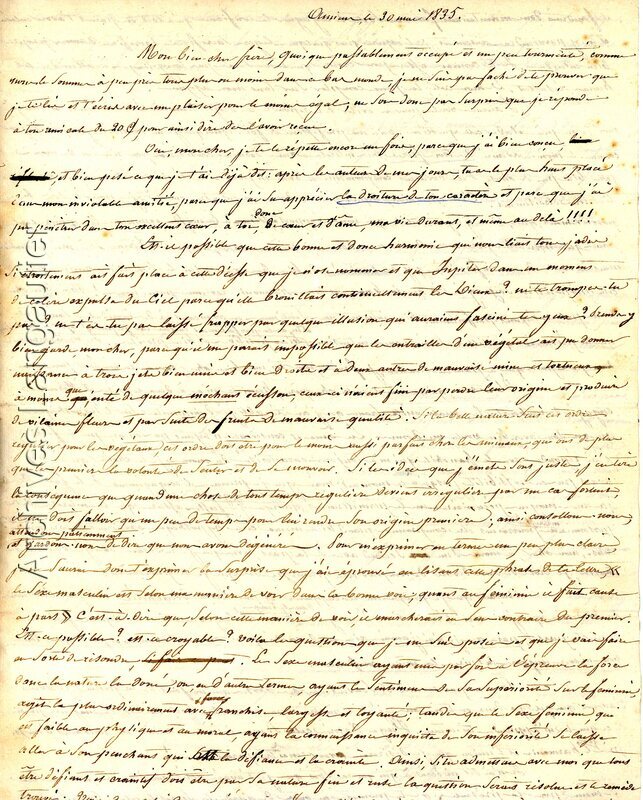 Amiens le 30 mai 1835.
Mon bien cher frère, quoique passablement occupé et un peu tourmenté, comme
nous le sommes à peu près tous plus ou moins dans ce bas monde, je ne suis pas faché de te prouver que
je te lis et t'écris avec un plaisir pour le moins égal, ne sois donc pas surpris que je réponde
à ton amicale du 20 Ct pour ainsi dire dès l'avoir recue.
Oui, mon cher, je te le répette encore une fois, parceque j'ai bien conçu
et bien pesé ce que je t'ai déjà dit: après les auteurs de mes jours, tu as le plus haut placé
dans mon inviolable amitié, parce que j'ai su apprécier la droiture de ton caractère et parce que j'ai
pu pénétrer dans ton excellent cœur, à toi, donc de cœur et d'âme, ma vie durant, et même au delà !!!!
Est-il possible que cette bonne et douce harmonie qui nous liait tous jadis
si étroitement ait fait place à cette déesse que je n'ose nommer et que Jupiter dans un moment
de colère expulsa du Ciel parce qu'elle brouillait continuellement les Dieux? ne te trompes-tu
pas? ne t'es-tu pas laissé frapper par quelque illusion qui aurait fasciné tes yeux? Prends-y
bien garde mon cher, parce qu'il me parait impossible que les entrailles d'un végétal ait pu donner
naissance à trois jets bien unis et bien droits et à deux autres de mauvaise mine et tortueux
à moins que enté de quelque méchant écusson, ceux-ci n'aient fini par perdre leur origine et produire
de vilaines fleurs et par suite des fruits de mauvaise qualité. Si la belle nature suit cet ordre
régulier pour les végétaux cet ordre doit être pour le moins aussi parfait chez les animaux, qui ont de plus
que les premiers la volonté de sentir et de se mouvoir. Si l'idée que j'émets est juste, j'en tire
la conséquence que quand une chose de tous temps régulière devient irrégulière par un cas fortuit,
il ne doit falloir qu'un peu de temps pour lui rendre son origine première, ainsi consolons-nous,
attendons patiemment
et gardons-nous de dire que nous avons dégénéré. Pour m'exprimer en termes un peu plus clairs,
je ne saurais dont t'exprimer la surprise que j'ai éprouvé en lisant cette phrase de ta lettre «
le sexe masculin est selon ma manière de voir dans la bonne voie; quant au féminin il fait cause
à part » C'est-à-dire que selon cette manière de voir il marcherait en sens contraire du premier.
Est-ce possible? est-ce croyable? voilà la question que je me suis posée et que je vais faire
en sorte de résoudre, Le sexe masculin ayant une foi à l'épreuve la force
dont la nature l'a doué, ou en d'autres termes, ayant le sentiment de sa supériorité sur le féminin
agit le plus ordinairement avec force franchise largesse et loyauté; tandis que le sexe féminin qui
est faible au physique et au moral, ayant la connaissance inquiète de son infériorité se laisse
aller à son penchant qui est la défiance et la crainte. Ainsi, si tu admettais avec moi que tous
être défiant et craintif doit être par sa nature fin et rusé la question serait résolue et le remède
trouvé.
Archives Largaulier